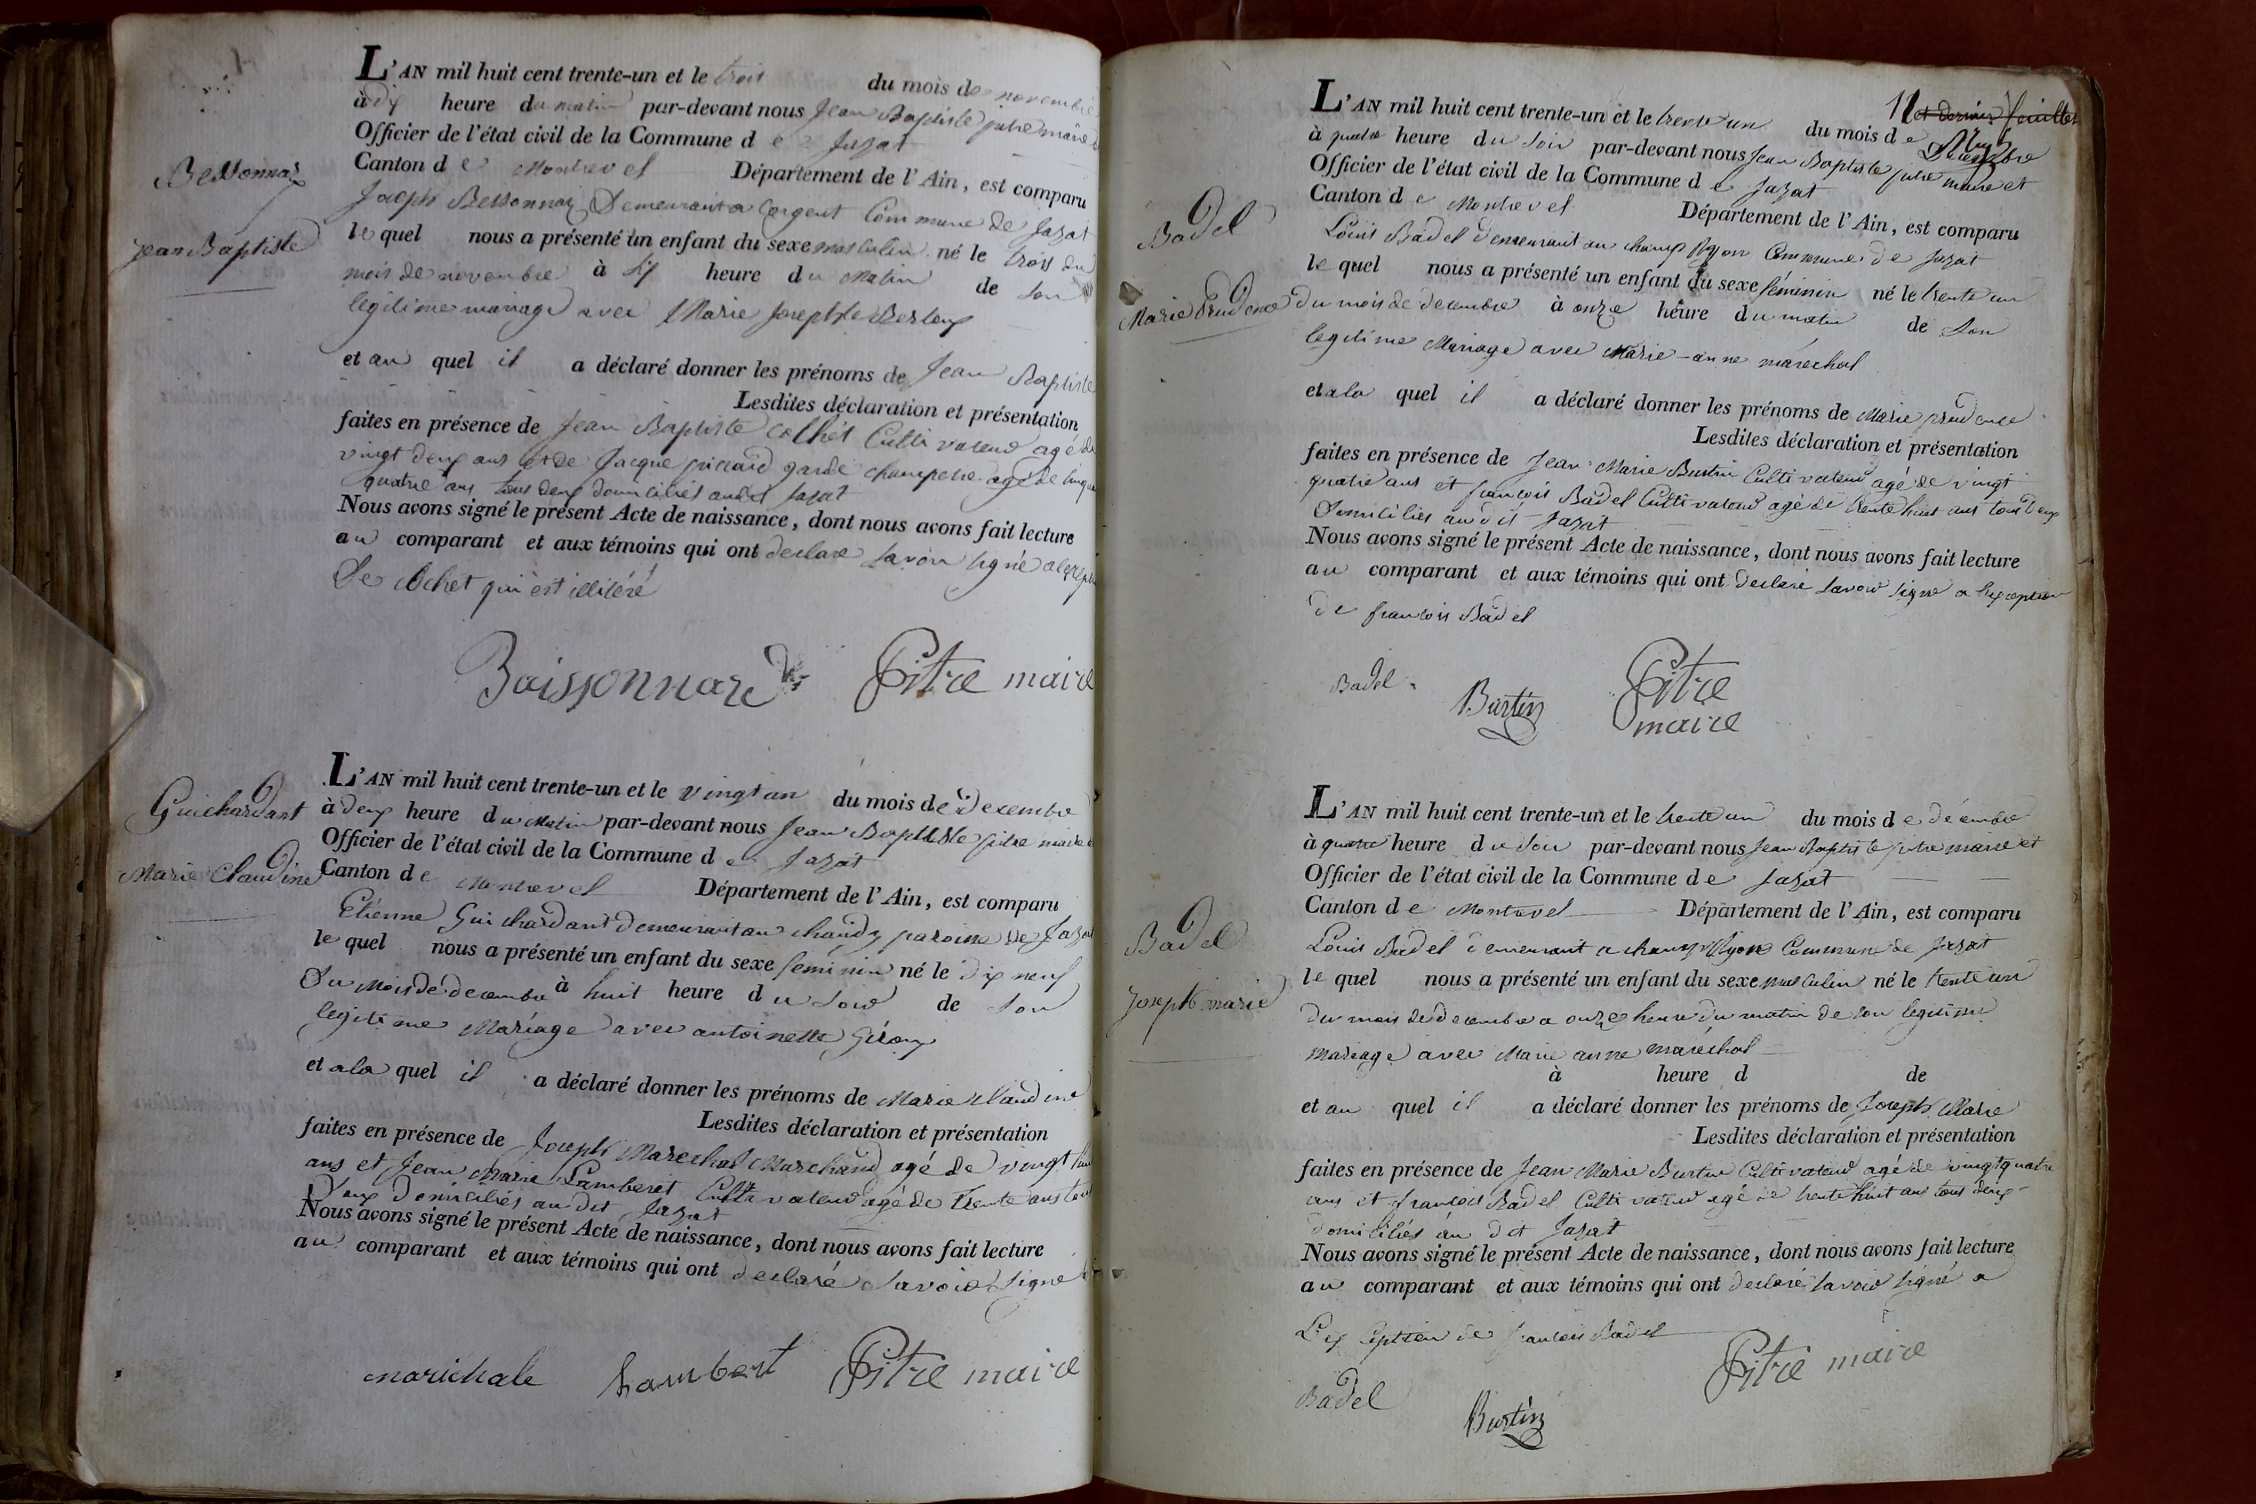 Bessonnard
Jean Baptiste
L'AN mil huit cent trente-un et le trois du mois de novembre
à dix heure du matin par-devant nous Jean Baptiste pitre maire
Officier de l'état civil de la Commune de Jazat
Canton de Montrevel Département de l'Ain, est comparu
Joseph Bessonnard Demeurant a Commune de Jazat
lequel nous a présenté un enfant du sexe masculin né le trois du
mois de novembre à six heure du Matin de son
legitime mariage avec Marie Josephte
et au quel il a déclaré donner les prénoms de Jean Baptiste
Lesdites déclaration et présentation
faites en présence de Jean Baptiste Cochet Cultivateur agé de
vingt deux ans et de Jacque garde champetre agé de
quatre ans tous deux domiciliés audit Jazat
Nous avons signé le présent Acte de naissance, dont nous avons fait lecture
au comparant et aux témoins qui ont declaré savoir signé
De Cochet qui est illitéré
Boissonnard Pitre maire
Guichardant
Marie Claudine
L'AN mil huit cent trente-un et le vingt un du mois de decembre
à deux heure du Matin par-devant nous Jean Baptiste pitre maire
Officier de l'état civil de la Commune de Jazat
Canton de Montrevel Département de l'Ain, est comparu
Etienne Guichardant demeurant au paroisse de Jazat
lequel nous a présenté un enfant du sexe feminin né le dix neuf
Du Mois de decembre à huit heure du Soir de son
legitime Mariage avec antoinette
et a la quel il a déclaré donner les prénoms de Marie Claudine
Lesdites déclaration et présentation
faites en présence de Joseph Marechal Marchand agé de vingt
ans et Jean Marie Lamberet Cultivateur agé de trente ans tous
Deux domiciliés au dit Jazat
Nous avons signé le présent Acte de naissance, dont nous avons fait lecture
au comparant et aux témoins qui ont declaré Savoir Signe
marichale Lambert Pitre maire
feuillet
Badel
Marie Prudence
L'AN mil huit cent trente-un et le trente un du mois de Decembre
à quatre heure du Soir par-devant nous Jean Baptiste pitre maire et
Officier de l'état civil de la Commune de Jazat
Canton de Montrevel Département de l'Ain, est comparu
Louis Badel demeurant au champ Commune de Jazat
lequel nous a présenté un enfant du sexe féminin né le trente un
du mois de decembre à onze heure du matin de Son
legitime Mariage avec Marie-anne maréchal
et a la quel il a déclaré donner les prénoms de Marie prudence
Lesdites déclaration et présentation
faites en présence de Jean Marie Burtin Cultivateur agé de vingt
quatre ans et françois Badel Cultivateur agé de trente huit ans tous Deux
Domiciliés au dit Jazat
Nous avons signé le présent Acte de naissance, dont nous avons fait lecture
au comparant et aux témoins qui ont declaré savoir signé a l'exception
de francois Badel
Badel Burtin Pitre
maire
Badel
Joseph marie
L'AN mil huit cent trente-un et le trente un du mois de décembre
à quatre heure du Soir par-devant nous Jean Baptiste pitre maire et
Officier de l'état civil de la Commune de Jazat
Canton de Montrevel Département de l'Ain, est comparu
Louis Badel demeurant a champ Commune de Jazat
lequel nous a présenté un enfant du sexe masculin né le trente un
du mois de decembre a onze heure du matin de son legitime
mariage avec Marie anne maréchal
à heure d de
et au quel il a déclaré donner les prénoms de Joseph Marie
Lesdites déclaration et présentation
faites en présence de Jean Marie Burtin Cultivateur agé de vingt quatre
ans et francois Badel Cultivateur agé de trente huit ans tous deux
domiciliés au dit Jazat
Nous avons signé le présent Acte de naissance, dont nous avons fait lecture
au comparant et aux témoins qui ont declaré savoir signé a
L'ex ception de francois Badel
Badel Burtin Pitre maire